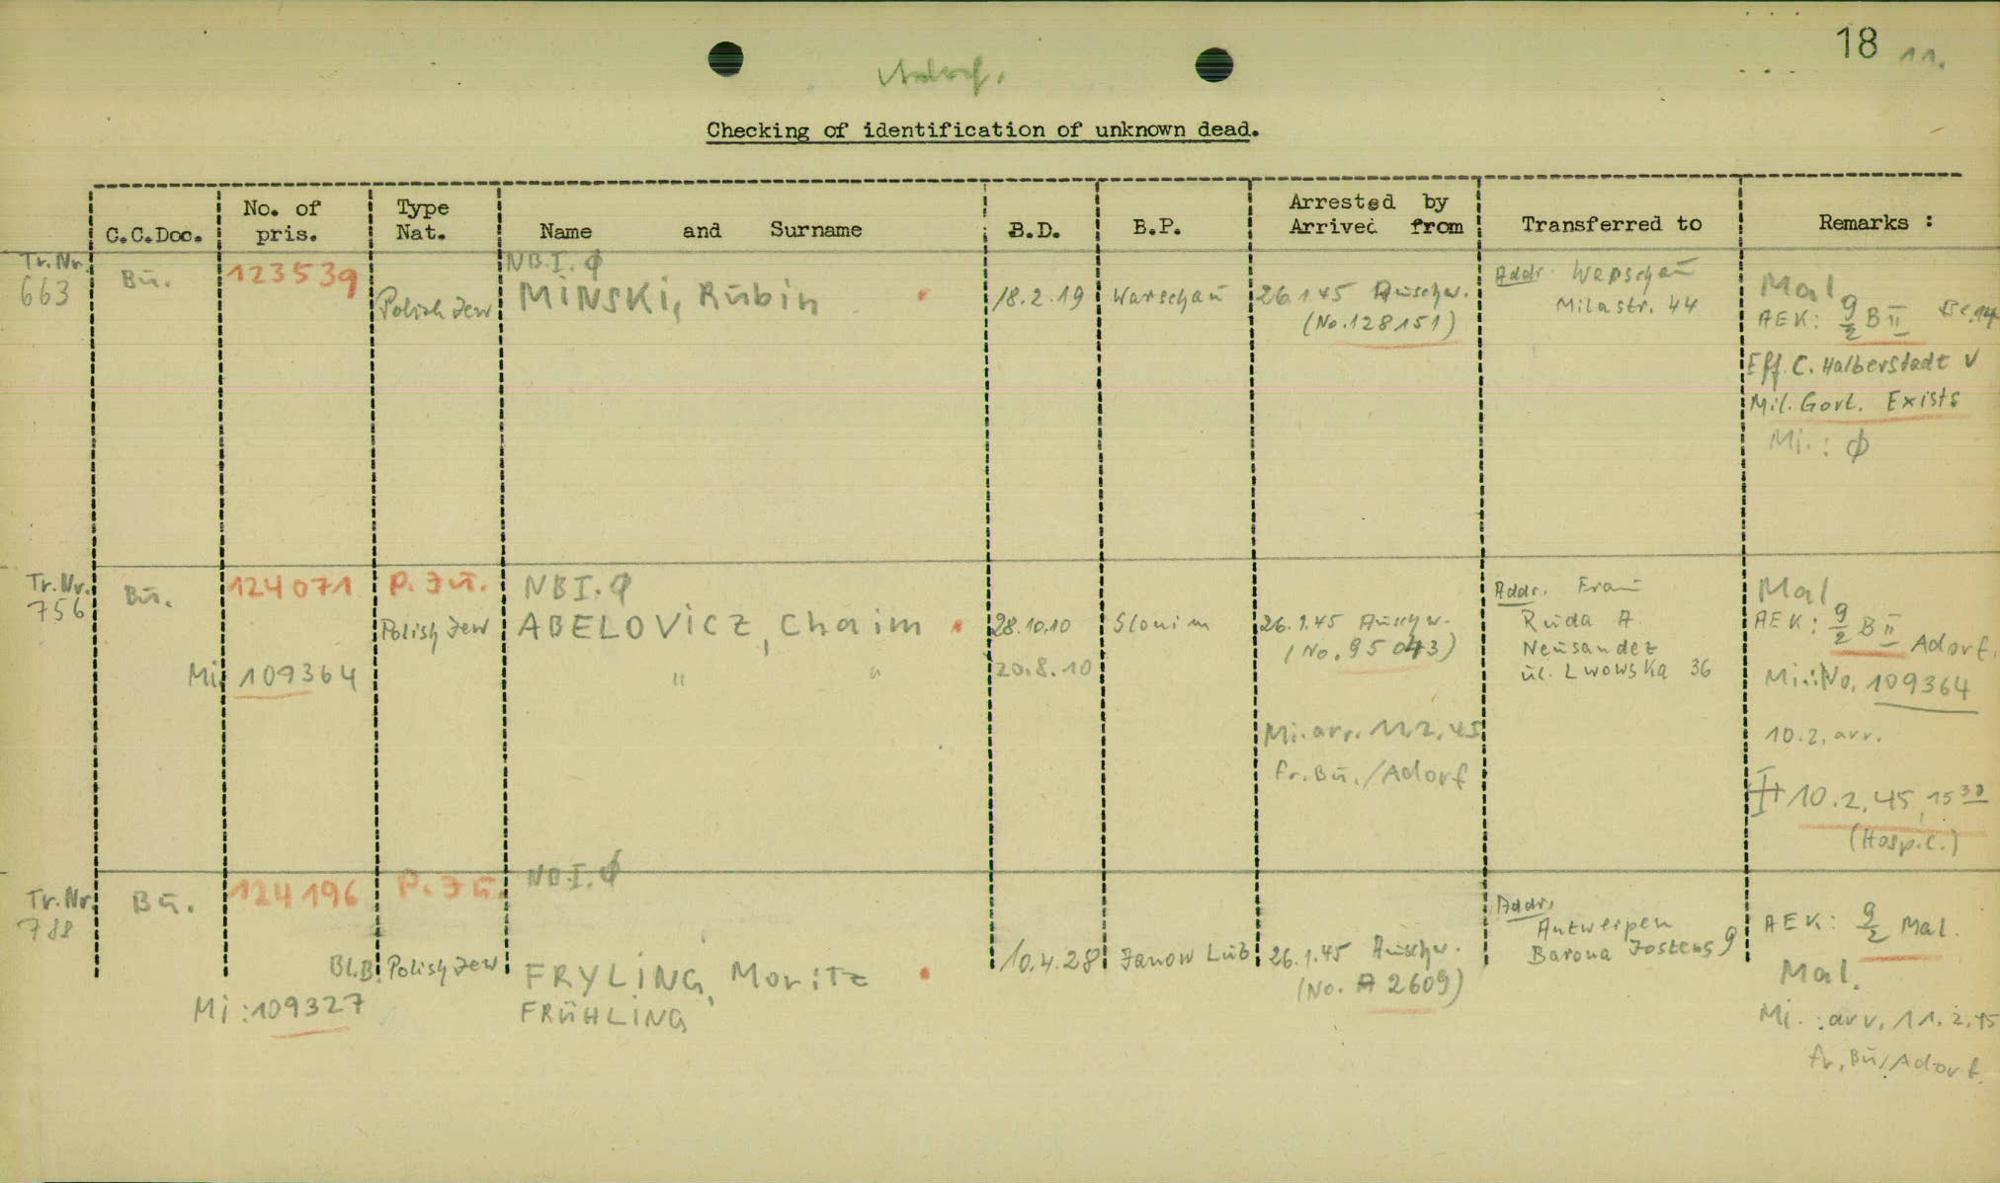 18 11.
Adorf.
Checking of identification of unknown dead.
C.C.Doc. No. of pris. Type Nat. Name and Surname B.D. B.P. Arrested by Arrived from Transferred to Remarks :
Tr.Nr. 663 Bū. 123539 Polish Jew
NB.I. φ
MINSKI, Rūbin 18.2.19 Warschaū 26.1.45 Aūschw.
(No.128151)
Addr. Warschaū
Milastr. 44
Mal
AEK: 9/2 B II
Eff. C. Halberstadt V
Mil. Govt. Exists
Mi.: φ
Tr.Nr. 756 Bū. 124071 P. Jū.
NBI. φ
Polish Jew ABELOVICZ, Chaim 28.10.10 Slonim 26.1.45 Aūschw.
(No. 95043)
Mi 109364 " " 20.8.10
Mi. arr. 11.2.45
fr. Bū./Adorf
Addr. Fraū
Rūda A.
Neūsandez
ūl. Lwowska 36
Mal
AEK: 9/2 B II Adorf.
Mi.: No. 109364
10.2. arr.
10.2.45, 15 30
(Hosp.C.)
Tr.Nr 788 Bū. 124196 P. Jū.
NBI. φ
Bl.B. Polish Jew FRYLING, Moritz 10.4.28 Janow Lub 26.1.45 Aūschw.
(No. A 2609)
Mi: 109327 FRŪHLING
Addr.
Antwerpen
Barona Jostens 9
AEK: 9/2 Mal.
Mal.
Mi.: arr. 11.2.45
fr. Bū/Adorf.